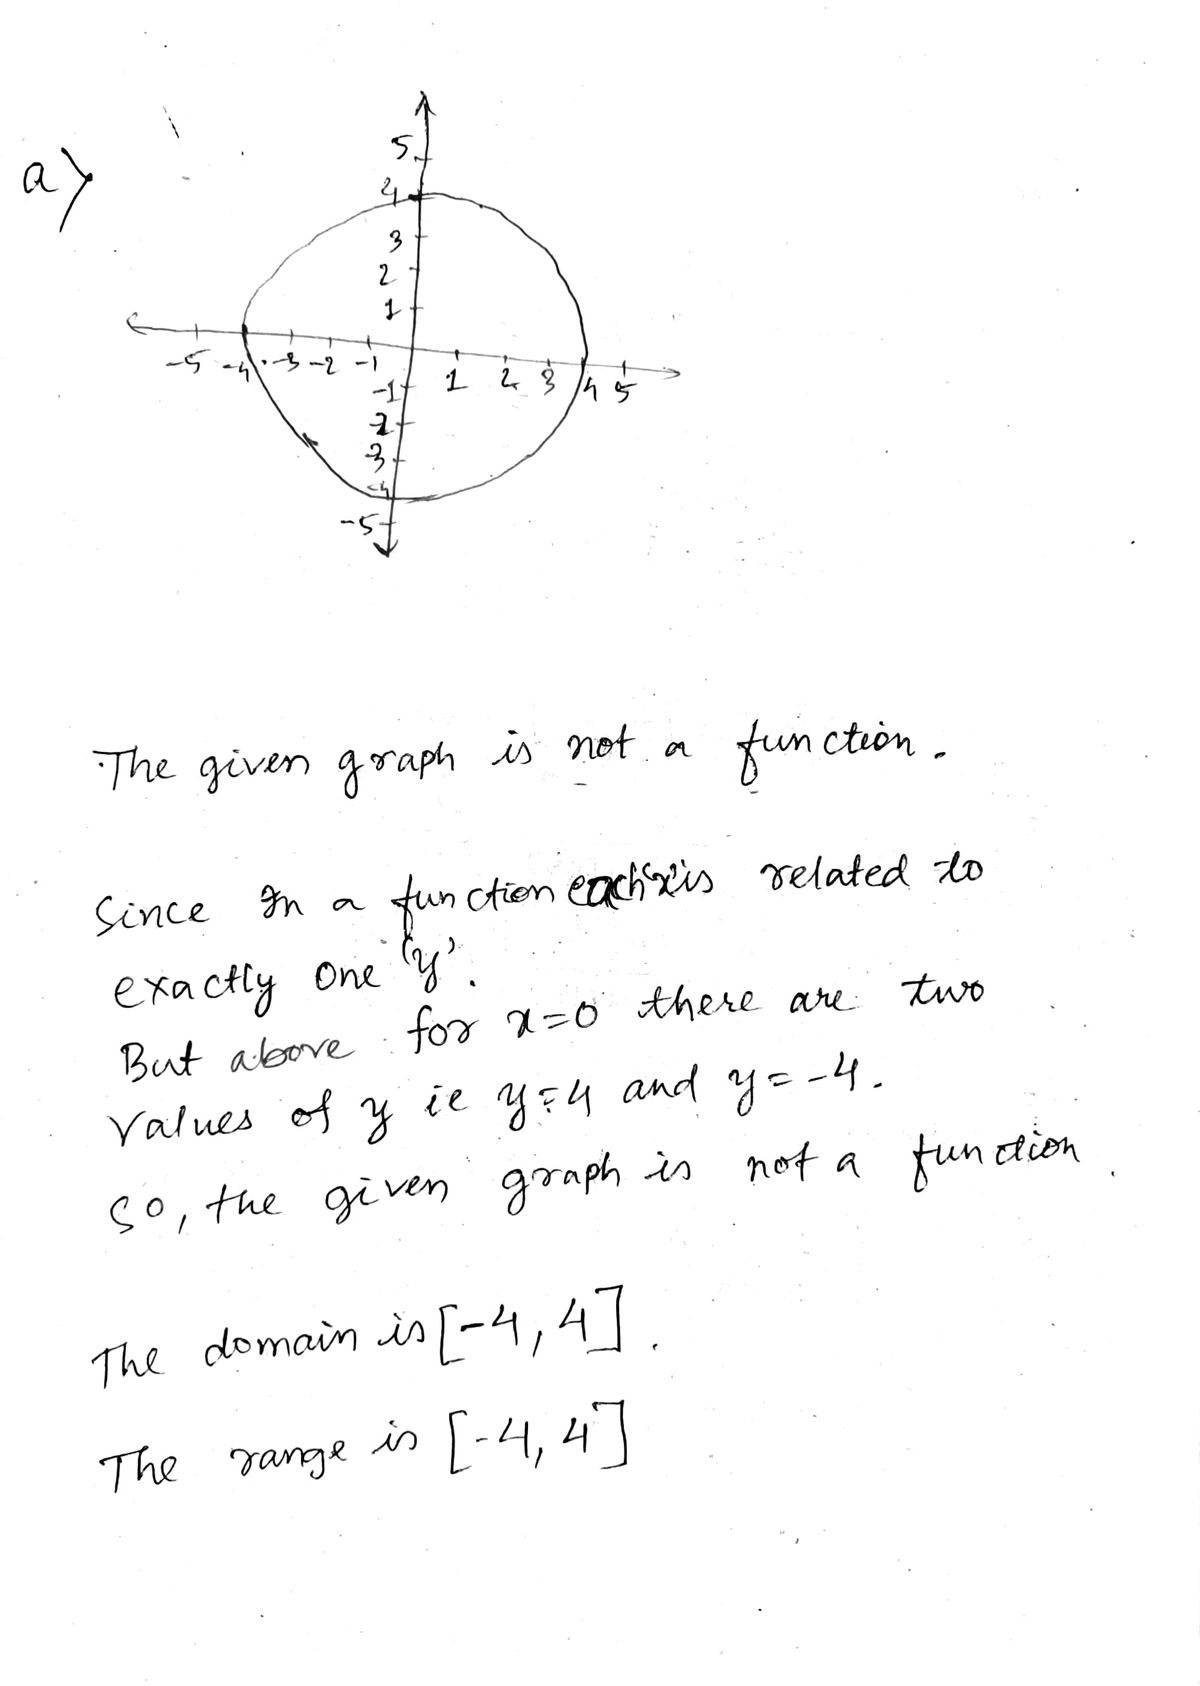 a)
5
4
3
2
1
-5 -4 -3 -2 -1
1 2 3 4 5
-1
-2
-3
-4
-5
The given graph is not a function.
Since In a function each 'x' is related to
exactly one 'y'.
But above for x=0 there are two
values of y ie y=4 and y=-4.
So, the given graph is not a function.
The domain is [-4, 4].
The range is [-4, 4]